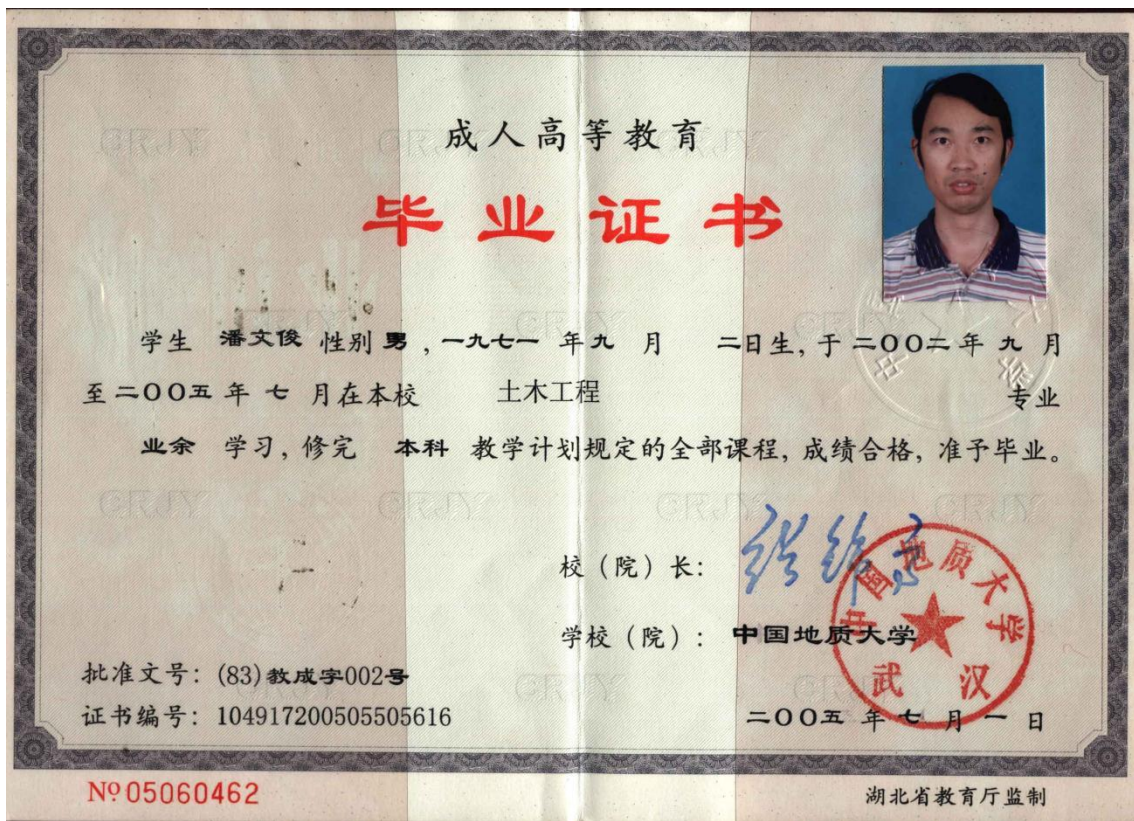 成人高等教育
毕业证书
学生 潘文俊 性别 男，一九七一 年 九 月 二日生，于 二〇〇二 年 九 月
至 二〇〇五 年 七 月在本校 土木工程 专业
业余 学习，修完 本科 教学计划规定的全部课程，成绩合格，准予毕业。
校（院）长：
学校（院）：中国地质大学
中国地质大学
武汉
批准文号：(83)教成字002号
证书编号：104917200505505616
二〇〇五 年 七 月 一 日
№ 05060462
湖北省教育厅监制
CRJY
CRJY
CRJY
CRJY
CRJY